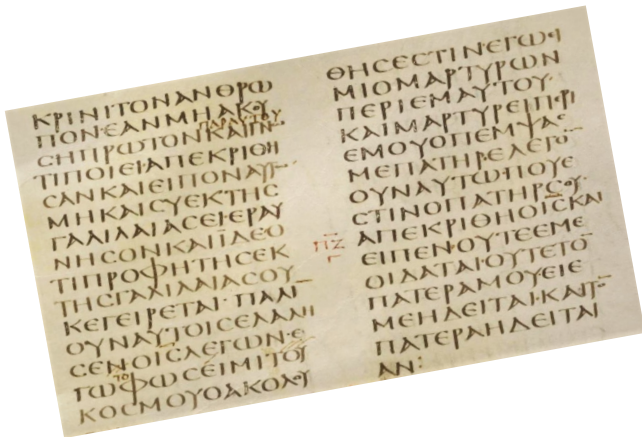 ΚΡΙΝΙΤΟΝΑΝΘΡΩ
ΠΟΝΕΑΝΜΗΑΚΟΥ
ΠΑΡΑΥΤΟΥ
ϹΗΠΡΩΤΟΝΚΑΙΓΝ
ΤΙΠΟΙΕΙ·ΑΠΕΚΡΙΘΗ
ϹΑΝΚΑΙΕΙΠΟΝΑΥΤ
ΜΗΚΑΙϹΥΕΚΤΗϹ
ΓΑΛΙΛΑΙΑϹΕΙ·ΕΡΑΥ
ΝΗϹΟΝΚΑΙΪΔΕΟ
ΤΙΠΡΟΦΗΤΗϹΕΚ
ΤΗϹΓΑΛΙΛΑΙΑϹΟΥ
ΚΕΓΕΙΡΕΤΑΙ·ΠΑΛΙ¯
ΟΥΝΑΥΤΟΙϹΕΛΑΛΗ
ϹΕΝ·Ο͞ΙϹΛΕΓΩΝ·Ε
ΤΟ
ΓΩΦΩϹΕΙΜΙΤΟΥ
ΚΟϹΜΟΥΟΑΚΟΛΟΥ
ΘΗϹΕϹΤΙΝ·ΕΓΩΕΙ
ΜΙΟΜΑΡΤΥΡΩΝ
ΠΕΡΙΕΜΑΥΤΟΥ·
ΚΑΙΜΑΡΤΥΡΕΙΠΕΡΙ
ΕΜΟΥΟΠΕΜΨΑϹ
ΜΕΠΑΤΗΡ·ΕΛΕΓΟ¯
ΟΥΝΑΥΤΩ·ΠΟΥΕ
ϹΤΙΝΟΠΑΤΗΡϹΟΥ·
ΠΖ
Γ
ΑΠΕΚΡΙΘΗΟ͞ΙϹΚΑΙ
ΕΙΠΕΝ·ΟΥΤΕΕΜΕ
ΟΙΔΑΤΑΙ·ΟΥΤΕΤΟ¯
ΠΑΤΕΡΑΜΟΥ·ΕΙΕ
ΜΕΗΔΕΙΤΑΙ·ΚΑΙΤ¯
ΠΑΤΕΡΑΗΔΕΙΤΑΙ
ΑΝ: